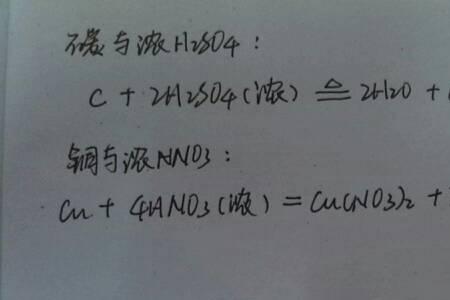 碳与浓H2SO4:
C + 2H2SO4(浓) ≜ 2H2O +
铜与浓HNO3:
Cu + 4HNO3(浓) = Cu(NO3)2 +